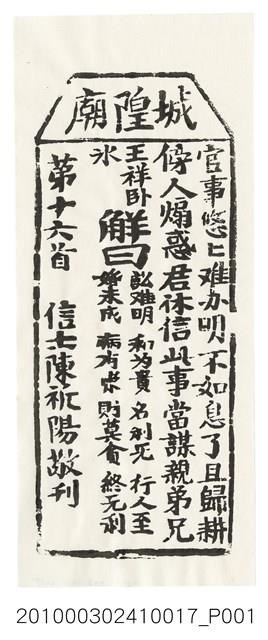 城隍廟
官事悠〻难办明不如息了且歸耕
傍人煽惑君休信此事當謀親弟兄
王祥卧
氷
解曰
訟难明 和为貴 名利死 行人至
婚未成 病有求 財莫貪 終无利
第十六首 信士陳祝陽敬刊
201000302410017_P001